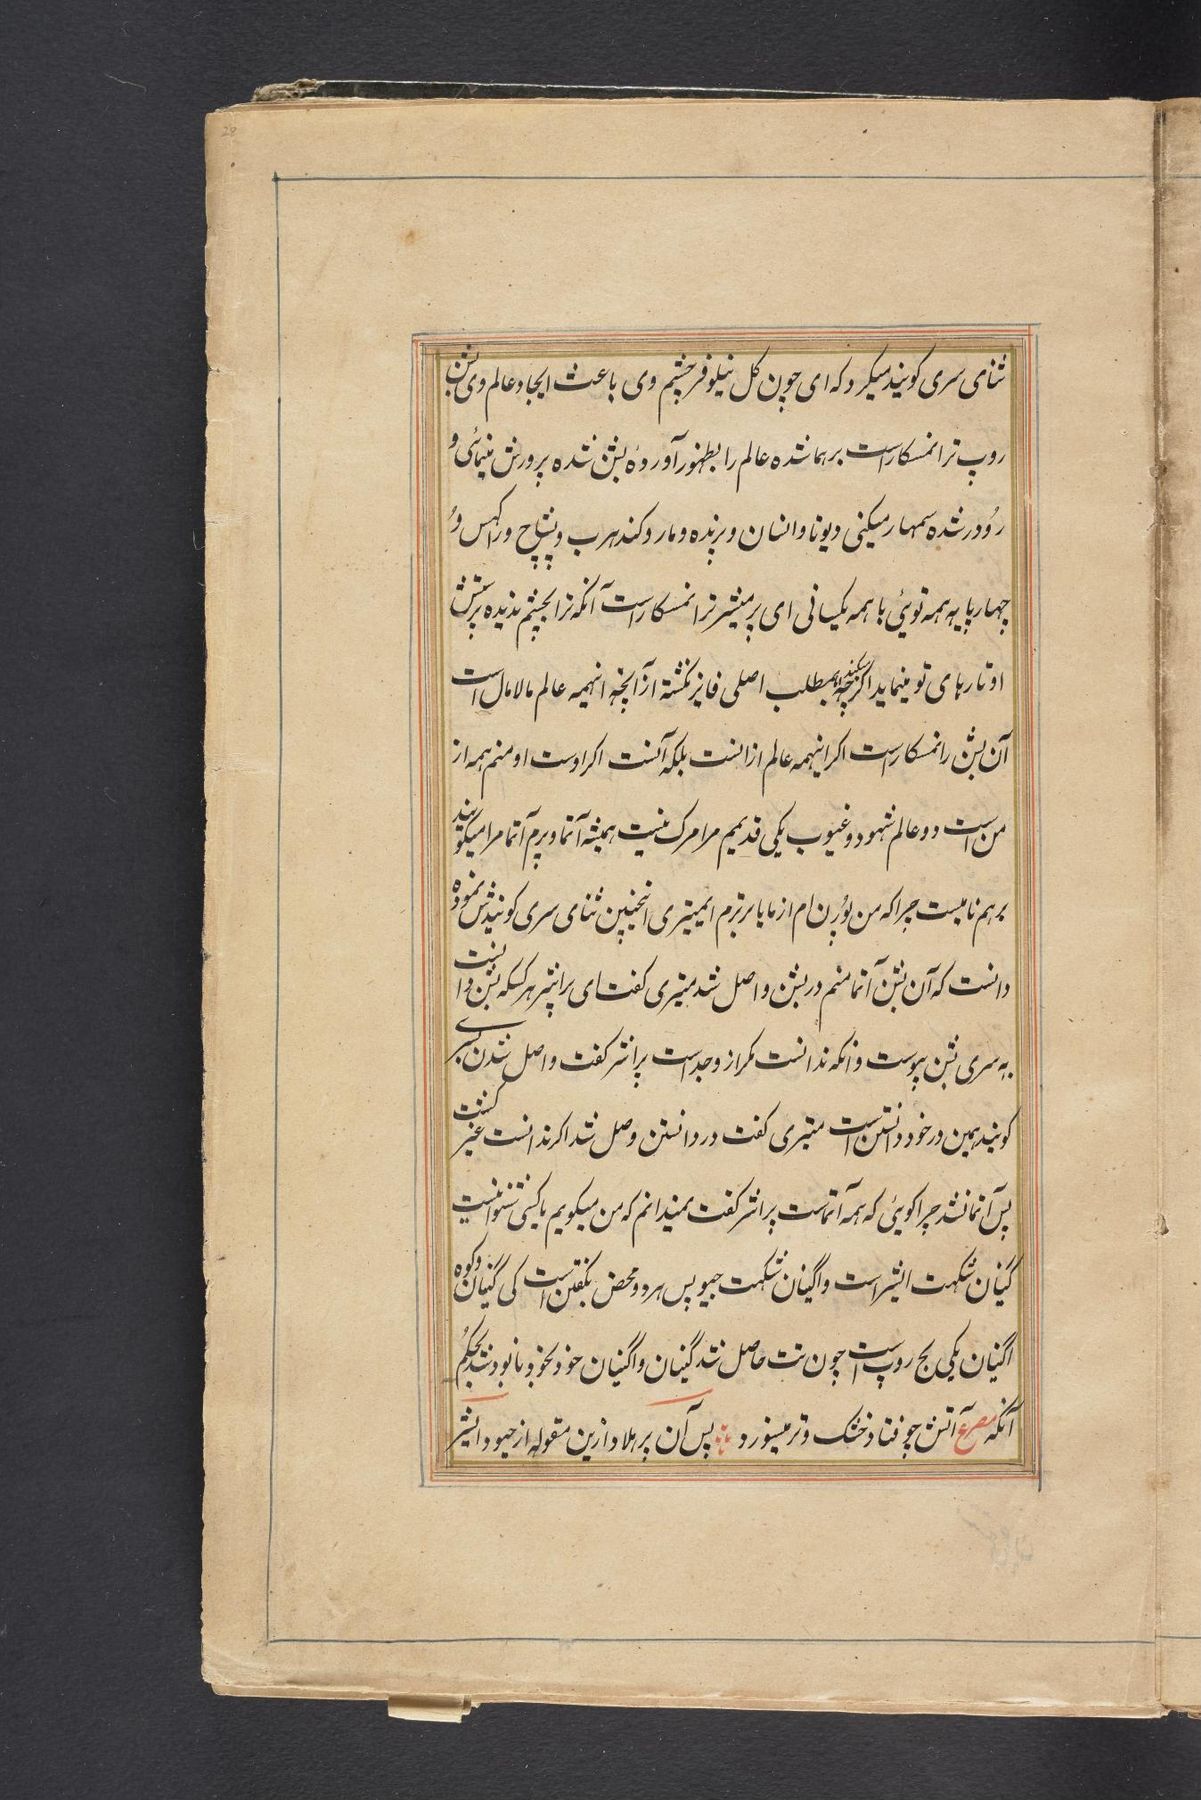 ثنای سری کوبیند میکرد که ای چون کل نیلوفر چشم وی باعث ایجاد عالم وی بشن
روپ ترا نمسکار است برهما شده عالم را بظهور آورده بشن شده پرورش مینمائی و
رُودر شده سمهار میکنی دیوتا وانسان و پرنده و مار و کندهرب و پشاچ و راکهس و
چهارپایه همه توئی با همه یکسانی ای پرمیشر ترا نمسکار است آنکه ترا بچشم ندیده پرستش
اوتارهای تو مینماید اکرچه بمطلب اصلی فایز نکشته از آنچه اینهمه عالم مالامال است
آن بشن را نمسکار است اکر اینهمه عالم ازانست بلکه آنست اکر اوست او منم همه از
من است دو عالم شهود و غیوب یکی قدیمیم مرا مرک نیست همیشه آتما و پرم آتما مرا میکویند
برهم نامیست چرا که من پُورن ام از مایا برترم ایمیتری اینچنین ثنای سری کوبیند نموده
دانست که آن بشن آتما منم در بشن واصل شد میتری کفت ای پراشر هرکسکه بشن دانست
به سری بشن پیوست وانکه ندانست مکر ازو جداست پراشر کفت واصل شدن بسری
کوبیند همین در خود دانستن است میتری کفت در دانستن وصل شد اکر ندانست غیر کشت
پس آتما نشد چرا کوئی که همه آتماست پراشر کفت نمیدانم که من میکویم یا کسی شنوانیست
گیان شکهت ایشر است و اگیان شکهت جیو پس هردو محض بکفتن است کی گیان و کوه
اگیان یکی بج روپ است چون تت حاصل شد گیان و اگیان خود بخود نابود شد بحکم
آنکه مصرع آتش چو فتاد خشک و تر میسوزد پس آن پرهلاد ازین مقوله از جیو و ایشر